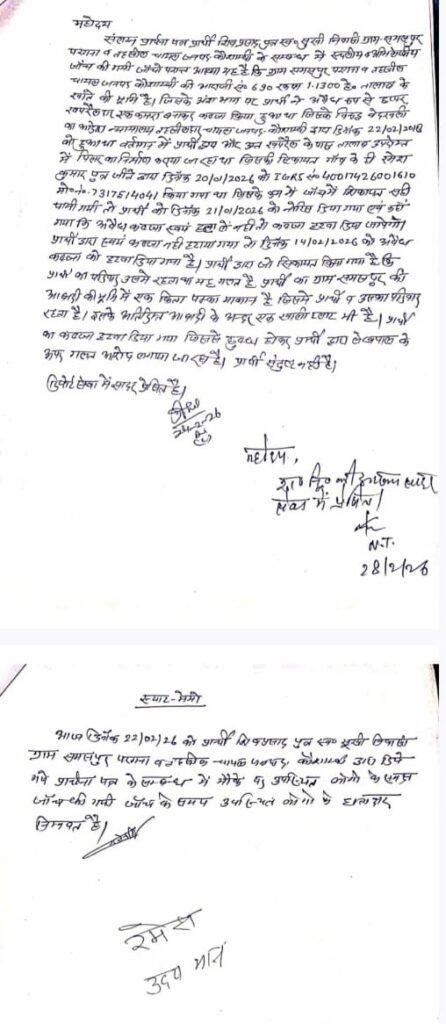 महोदय
संलग्न प्रार्थना पत्र प्रार्थी शिवप्रसाद पुत्र स्व० सुखी निवासी ग्राम-समसपुर
परगना व तहसील चायल जनपद कौशाम्बी के सम्बन्ध में स्थलीय व अभिलेखीय
जाँच की गयी जाँचो परान्त आख्या यह है कि ग्राम समसपुर परगना व तहसील
चायल जनपद कौशाम्बी की आराजी सं० 690 रकबा 1.1300 हे० तालाब के
खाते की भूमि है। जिसके अंश भाग पर प्रार्थी ने अवैध रूप से छप्पर
खपरैल एक कमरा बनाकर कब्जा किया हुआ था जिसके विरुद्ध बेदखली
का आदेश न्यायालय तहसीलदार चायल जनपद कौशाम्बी द्वारा दिनांक 22/02/2018
को हुआ था वर्तमान में प्रार्थी द्वारा और उस खपरैल के पास तालाब उपरोक्त
में पिलर का निर्माण कराया जा रहा था जिसकी शिकायत गाँव के ही
कुमार पुत्र द्वारा दिनांक 20/01/2026 को IGRS सं० 40017426001610
मो०न०-7317514041 किया गया था जिसके क्रम में जाँच में शिकायत सही
पायी गयी तो प्रार्थी को दिनांक 21/01/2026 को नोटिस दिया गया एवं कहा
गया कि अवैध कब्जा स्वयं हटा ले नही तो कब्जा हटवा दिया जायेगा।
प्रार्थी द्वारा स्वयं कब्जा नही हटाया गया तो दिनांक 14/02/2026 को अवैध
कब्जा को हटवा दिया गया है। प्रार्थी द्वारा जो शिकायत किया गया है कि
प्रार्थी का परिवार उसमे रहता था यह गलत है प्रार्थी का ग्राम समसपुर की
आबादी की भूमि में एक किता पक्का मकान है जिसमे प्रार्थी व उसका परिवार
रहता है। इसके अतिरिक्त आबादी के अन्दर एक खाली प्लाट भी है। प्रार्थी
का कब्जा हटवा दिया गया जिससे क्षुब्ध होकर प्रार्थी द्वारा लेखपाल के
ऊपर गलत आरोप लगाया जा रहा है। प्रार्थी संतुष्ट नही है।
रिपोर्ट सेवा में सादर प्रेषित है।
24-2-26
महोदय,
सेवा में प्रेषित।
N.T.
28/2/26
स्थल-मेमो
आज दिनांक 22/02/26 को प्रार्थी शिवप्रसाद पुत्र स्व० सुखी निवासी
ग्राम समसपुर परगना व तहसील चायल जनपद कौशाम्बी द्वारा दिये
गये प्रार्थना पत्र के सम्बन्ध में मौके पर उपस्थित लोगो के समक्ष
जाँच की गयी जाँच के समय उपस्थित लोगो के हस्ताक्षर
निम्नवत है।
रमेश
उदय